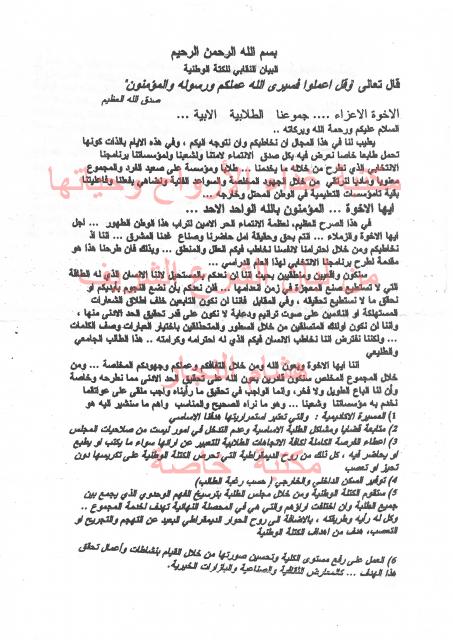 بسم الله الرحمن الرحيم
البيان النقابي للكتلة الوطنية
قال تعالى "وقل اعملوا فسيرى الله عملكم ورسوله والمؤمنون"
صدق الله العظيم
الاخوة الاعزاء .... جموعنا الطلابية الابية ...
السلام عليكم ورحمة الله وبركاته ..
يطيب لنا في هذا المجال ان نخاطبكم وان نتوجه اليكم ، وفي هذه الايام بالذات كونها
تحمل طابعا خاصا نعرض فيه بكل صدق الانتماء لامتنا ولشعبنا ولمؤسساتنا برنامجنا
الانتخابي الذي نطرح من خلاله ما يخدمنا .. طلابا ومؤسسة على صعيد الفرد والمجموع
معنويا وماديا لنرتقي من خلال الجهود المخلصة والسواعد الفتية ونضاهي بفعلنا وفاعليتنا
بقية المؤسسات التعليمية في الوطن المحتل وخارجه .
ايها الاخوة ... المؤمنون بالله الواحد الاحد ...
في هذا الصرح العظيم، لعظمة الانتماء الحر الامين لتراب هذا الوطن الطهور ... لجل
الاخوة والزملاء ... انتم بحق وحقيقة امل حاضرنا وصناع غدنا المشرق ... اننا اذ
نخاطبكم ومن خلال احترامنا لانفسنا نخاطب فيكم العقل والمنطق ... وبذلك فان طرحنا هذا هو
مقدمة لطرح برنامجنا الانتخابي لهذا العام الدراسي ...
سنكون واقعيين ومنطقيين بحيث اننا لن نعدكم بالمستحيل لاننا الانسان الذي له الطاقة
التي لا تستطيع صنع المعجزة في زمن انعدامها ... فلن نعدكم بأن نضع النجوم بأيديكم او
نحقق ما لا نستطيع تحقيقه ، وفي المقابل فاننا لن نكون التابعين خلف اطلاق الشعارات
المستهلكة او النائمين على صوت ترانيم ودعاية لا تكون على قدر تحقيق الحد الادنى منها ،
واننا لن نكون اولئك المتسلقين من خلال السطور والمتحذلقين باختيار العبارات وصف الكلمات
... ولكننا نفترض اننا نخاطب الانسان فيكم الذي له احترامه وكرامته .. هذا الطالب الجامعي
والطليعي
اننا ايها الاخوة وبعون الله ومن خلال التفافكم وعملكم وجهودكم المخلصة ... ومن
خلال المجموع المخلص سنكون قادرين بعون الله على تحقيق الحد الادنى مما نطرحه وخاصة
وأن لنا الباع الطويل ولا فخر، وانما الواجب في تحقيق ما رأيناه واجب ملقى على عواتقنا
نخدم به مؤسساتنا وشعبنا ... وهو ما نراه الصحيح والمناسب واهم ما سنشير اليه هو
1) المسيرة الاكاديمية : والتي تعتبر استمراريتها هدفنا الاساسي
2) متابعة قضايا ومشاكل الطلبة الاساسية وعدم التدخل في امور ليست من صلاحيات المجلس
3) اعطاء الفرصة الكاملة لكافة الاتجاهات الطلابية للتعبير عن ارائها سواء ما يكتب او يطبع
او يحاضر فيه ، كل ذلك من روح الديمقراطية التي تحرص الكتلة الوطنية على تكريسها دون
تحيز او تعصب
4) توفير السكن الداخلي والخارجي ( حسب رغبة الطالب)
5) ستقوم الكتلة الوطنية ومن خلال مجلس الطلبة بترسيخ الفهم الوحدوي الذي يجمع بين
جميع الطلبة وان اختلفت اراؤهم والتي هي في المحصلة النهائية تهدف لخدمة المجموع ..
وكل له رأيه وطريقته ، بالاضافة الى روح الحوار الديمقراطي البعيد عن التهجم والتجريح او
التعصب، هدف من اهداف الكتلة الوطنية
6) العمل على رفع مستوى الكلية وتحسين صورتها من خلال القيام بنشاطات وأعمال تحقق
هذا الهدف ... كالمعارض الثقافية والصناعية والبازارات الخيرية.
هشام النجار
مكتبة خاصة